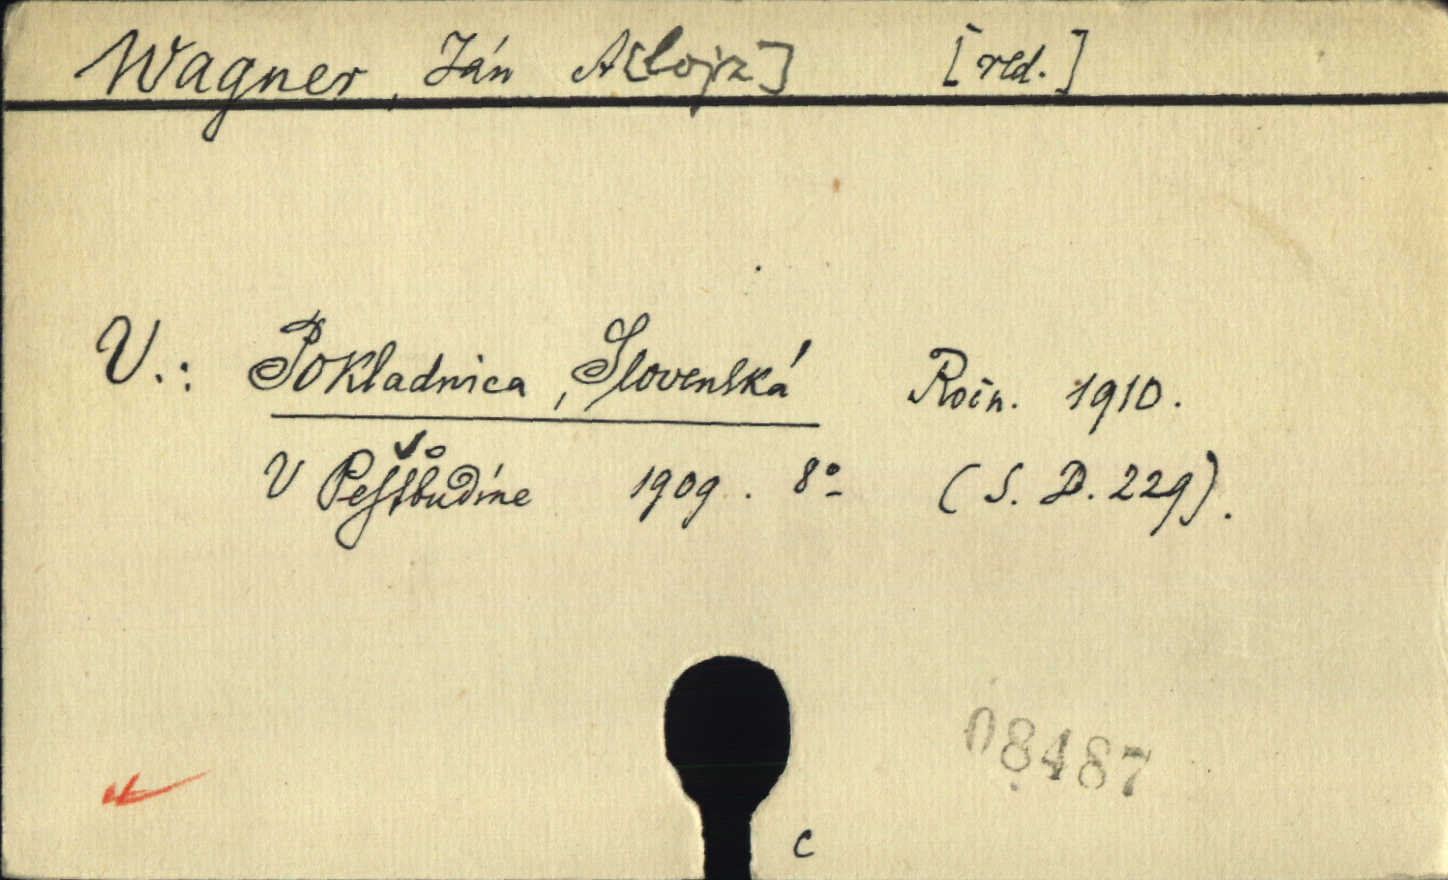 Wagner, Ján A[lojz] [red.]
V.: Pokladnica, Slovenská Ročn. 1910.
V Peſšbudíne 1909. 8° (S. D. 229).
08487
c